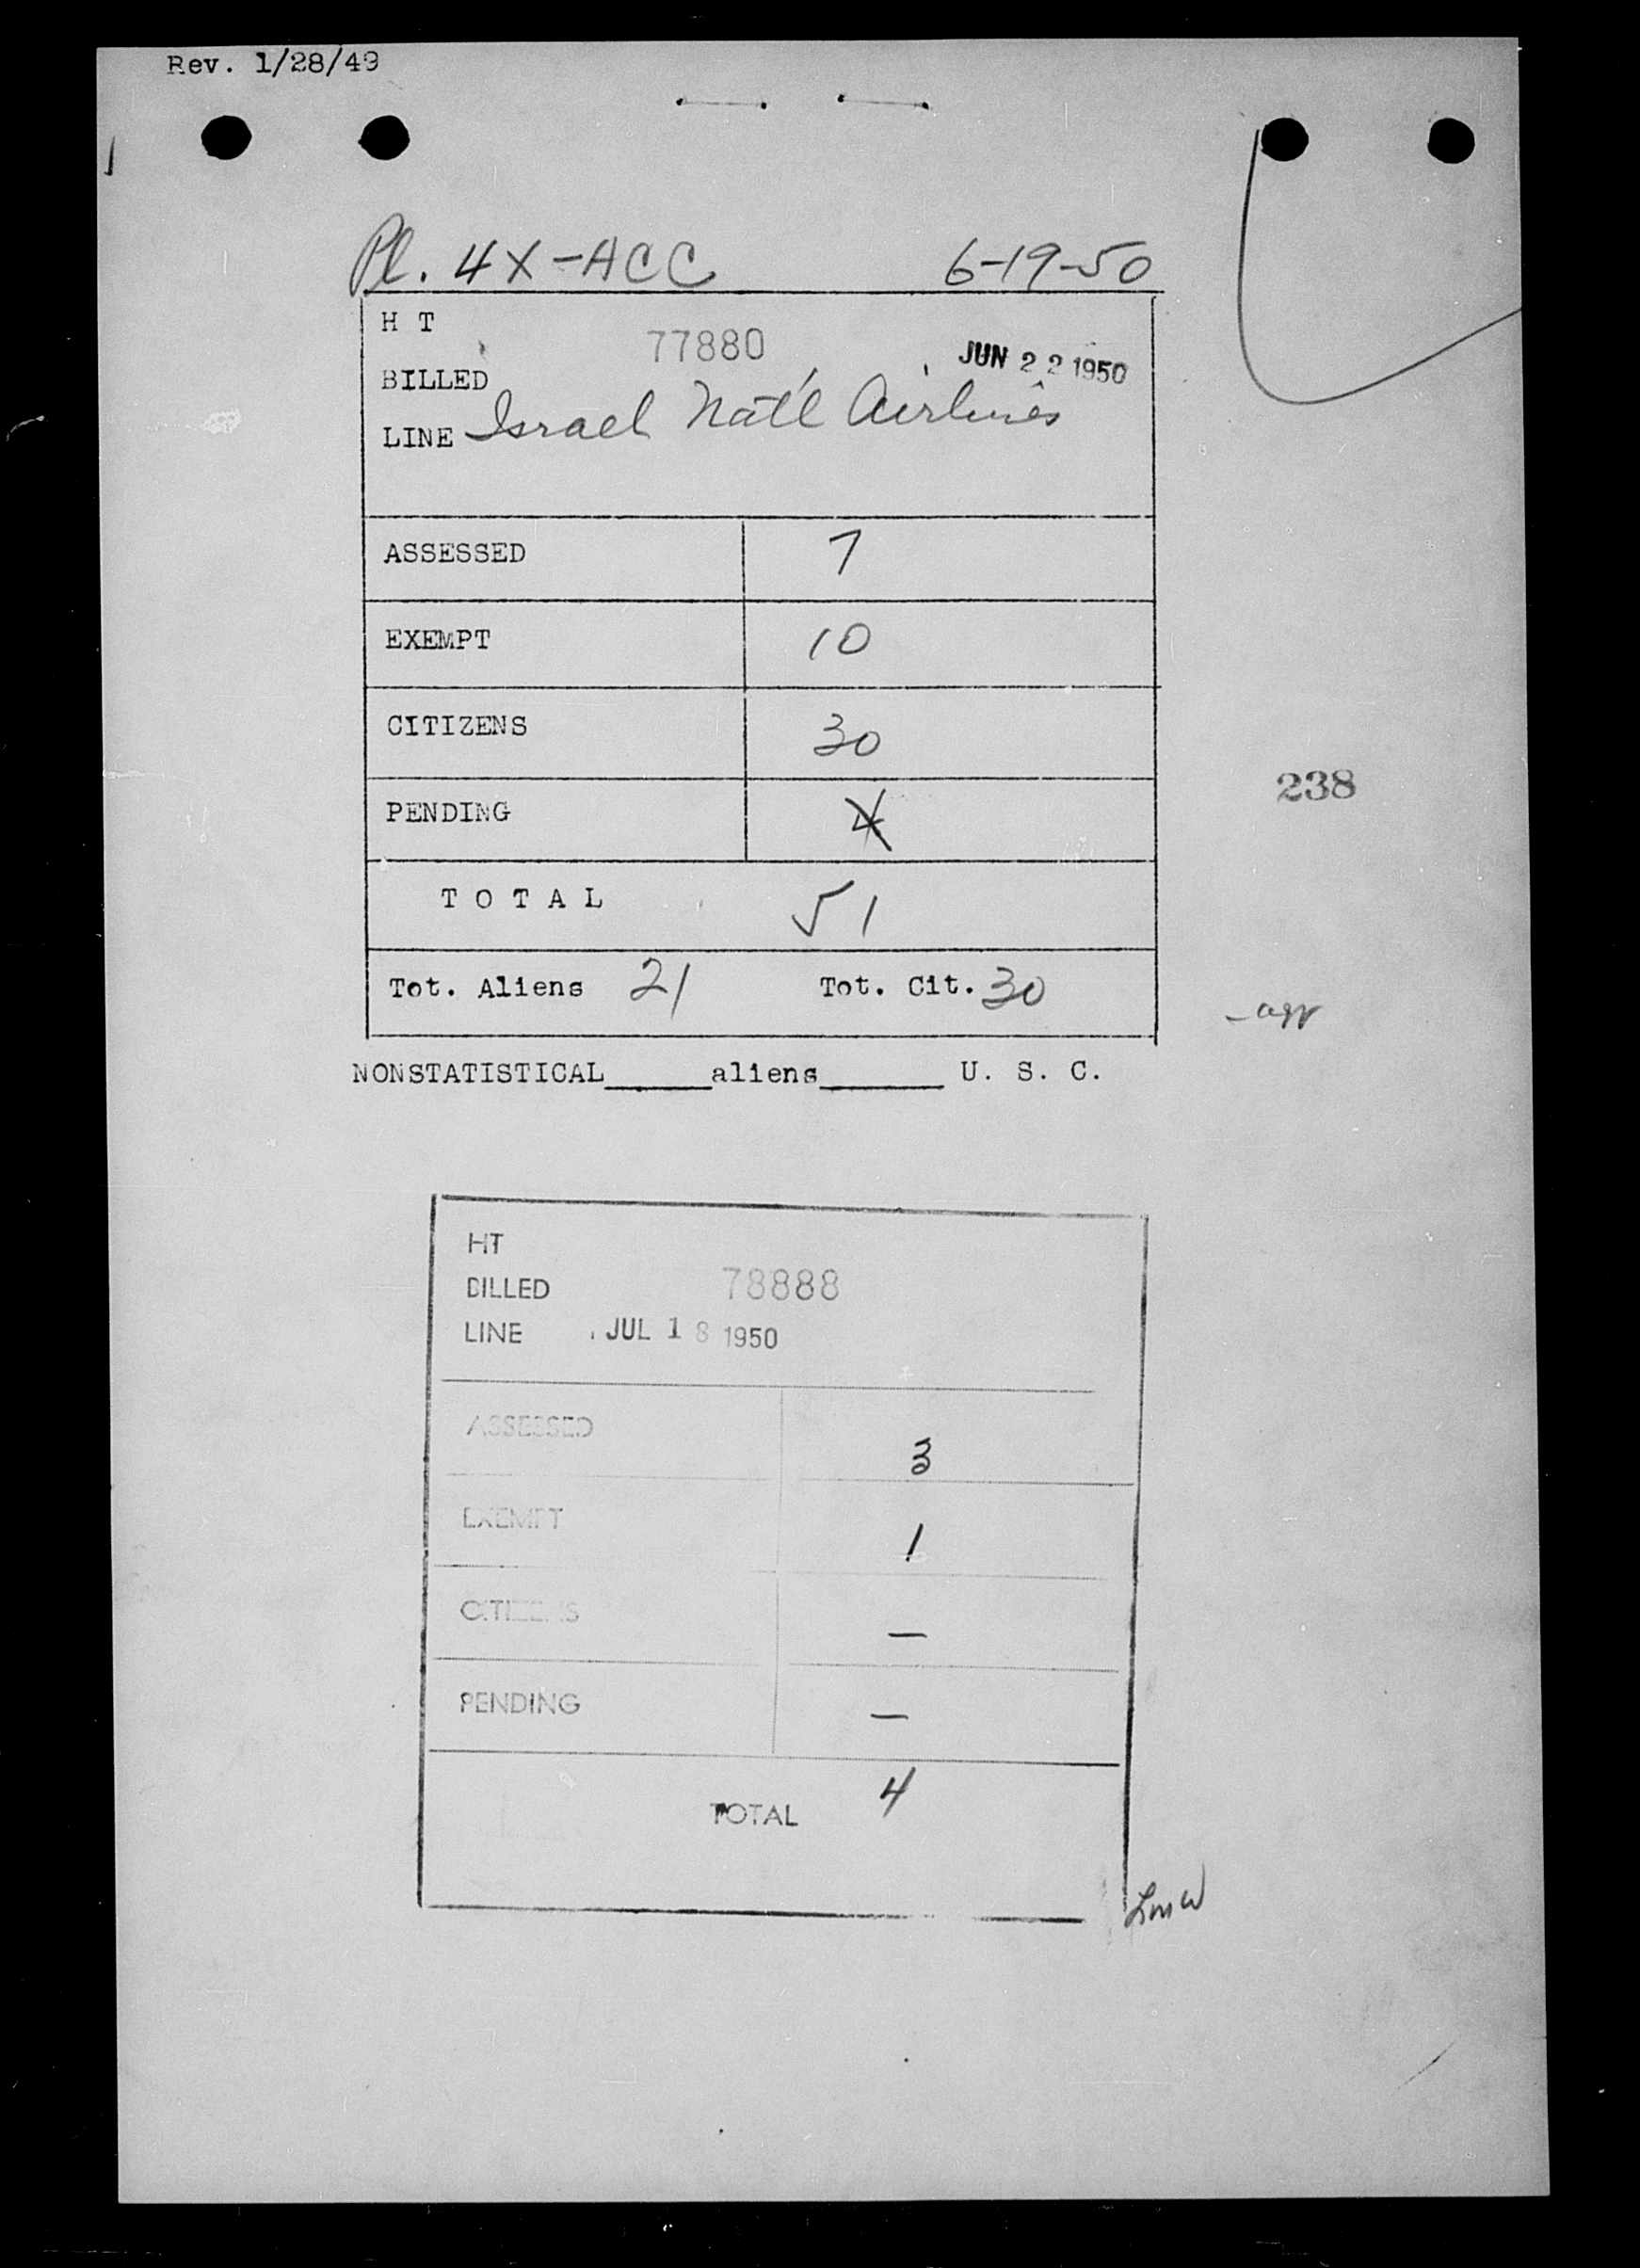 Rev. 1/28/49
Pl. 4X-ACC 6-19-50
H T
77880 JUN 22 1950
BILLED
LINE Israel Nat'l Airlines
ASSESSED 7
EXEMPT 10
CITIZENS 30
238
PENDING 4
TOTAL 51
Tot. Aliens 21 Tot. Cit. 30
NONSTATISTICAL______aliens_______ U. S. C.
HT
BILLED 78888
LINE JUL 18 1950
ASSESSED 3
EXEMPT 1
CITIZENS —
PENDING —
TOTAL 4